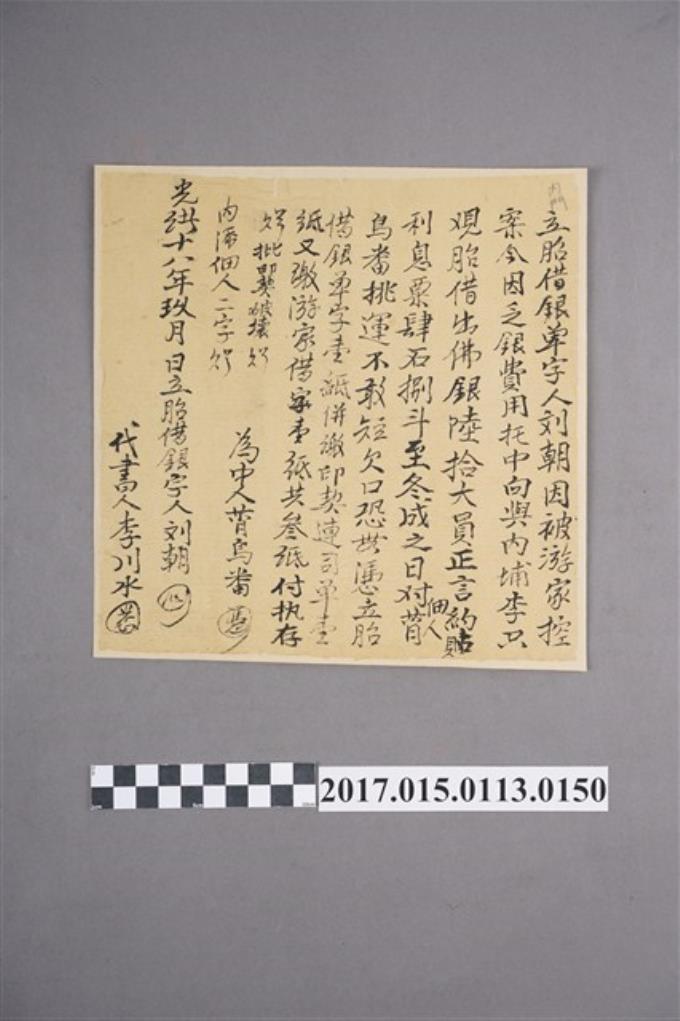 內門
立胎借銀单字人刘朝因被游家控
案今因乏銀費用托中向與內埔李只
观胎借出佛銀陸拾大員正言約貼
利息粟肆石捌斗至冬成之日对佃人莆
烏番挑運不敢短欠口恐無憑立胎
借銀单字壹紙併繳印契連司单壹
紙又繳游家借字壹紙共叁紙付执存
炤批契破壞炤
內添佃人二字炤
為中人莆烏番
光緒十八年玖月 日立胎借銀字人刘朝
代書人李川水
2017.015.0113.0150